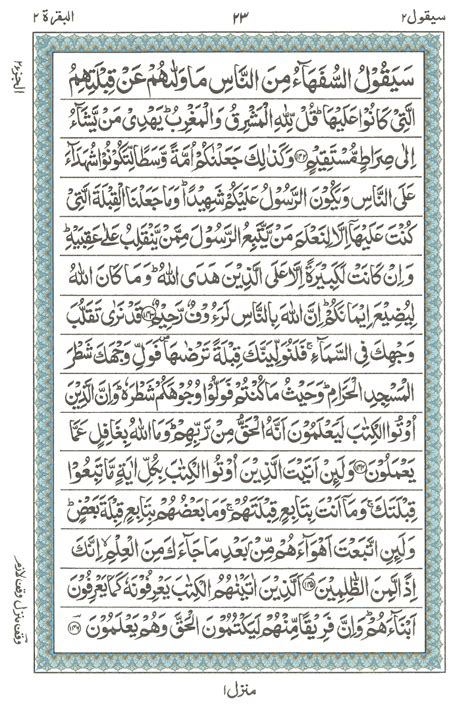 سيقول ٢ ٢٣ البقرة ٢
الجزء ٢
سَيَقُوْلُ السُّفَهَآءُ مِنَ النَّاسِ مَا وَلّٰىهُمْ عَنْ قِبْلَتِهِمُ
الَّتِيْ كَانُوْا عَلَيْهَا ؕ قُلْ لِّلّٰهِ الْمَشْرِقُ وَالْمَغْرِبُ ؕ يَهْدِيْ مَنْ يَّشَآءُ
اِلٰى صِرَاطٍ مُّسْتَقِيْمٍ ﴿۱۴۲﴾ وَكَذٰلِكَ جَعَلْنٰكُمْ اُمَّةً وَّسَطًا لِّتَكُوْنُوْا شُهَدَآءَ
عَلَى النَّاسِ وَيَكُوْنَ الرَّسُوْلُ عَلَيْكُمْ شَهِيْدًا ؕ وَمَا جَعَلْنَا الْقِبْلَةَ الَّتِيْ
كُنْتَ عَلَيْهَاۤ اِلَّا لِنَعْلَمَ مَنْ يَّتَّبِعُ الرَّسُوْلَ مِمَّنْ يَّنْقَلِبُ عَلٰى عَقِبَيْهِ ؕ
وَاِنْ كَانَتْ لَكَبِيْرَةً اِلَّا عَلَى الَّذِيْنَ هَدَى اللّٰهُ ؕ وَمَا كَانَ اللّٰهُ
لِيُضِيْعَ اِيْمَانَكُمْ ؕ اِنَّ اللّٰهَ بِالنَّاسِ لَرَءُوْفٌ رَّحِيْمٌ ﴿۱۴۳﴾ قَدْ نَرٰى تَقَلُّبَ
وَجْهِكَ فِي السَّمَآءِ ۚ فَلَنُوَلِّيَنَّكَ قِبْلَةً تَرْضٰىهَا ۪ فَوَلِّ وَجْهَكَ شَطْرَ
الْمَسْجِدِ الْحَرَامِ ؕ وَحَيْثُ مَا كُنْتُمْ فَوَلُّوْا وُجُوْهَكُمْ شَطْرَهٗ ؕ وَاِنَّ الَّذِيْنَ
اُوْتُوا الْكِتٰبَ لَيَعْلَمُوْنَ اَنَّهُ الْحَقُّ مِنْ رَّبِّهِمْ ؕ وَمَا اللّٰهُ بِغَافِلٍ عَمَّا
يَعْمَلُوْنَ ﴿۱۴۴﴾ وَلَئِنْ اَتَيْتَ الَّذِيْنَ اُوْتُوا الْكِتٰبَ بِكُلِّ اٰيَةٍ مَّا تَبِعُوْا
قِبْلَتَكَ ۚ وَمَاۤ اَنْتَ بِتَابِعٍ قِبْلَتَهُمْ ۚ وَمَا بَعْضُهُمْ بِتَابِعٍ قِبْلَةَ بَعْضٍ ؕ
وَلَئِنِ اتَّبَعْتَ اَهْوَآءَهُمْ مِّنْۢ بَعْدِ مَا جَآءَكَ مِنَ الْعِلْمِ ۙ اِنَّكَ
اِذًا لَّمِنَ الظّٰلِمِيْنَ ﴿۱۴۵﴾ اَلَّذِيْنَ اٰتَيْنٰهُمُ الْكِتٰبَ يَعْرِفُوْنَهٗ كَمَا يَعْرِفُوْنَ
اَبْنَآءَهُمْ ؕ وَاِنَّ فَرِيْقًا مِّنْهُمْ لَيَكْتُمُوْنَ الْحَقَّ وَهُمْ يَعْلَمُوْنَ ﴿۱۴۶﴾
وقف منزل وقف لازم
منزل ١